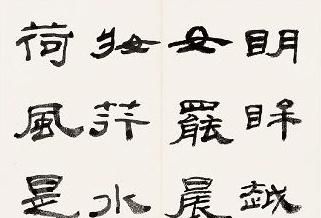 眀眸越
女罷晨
妝荇水
荷風是